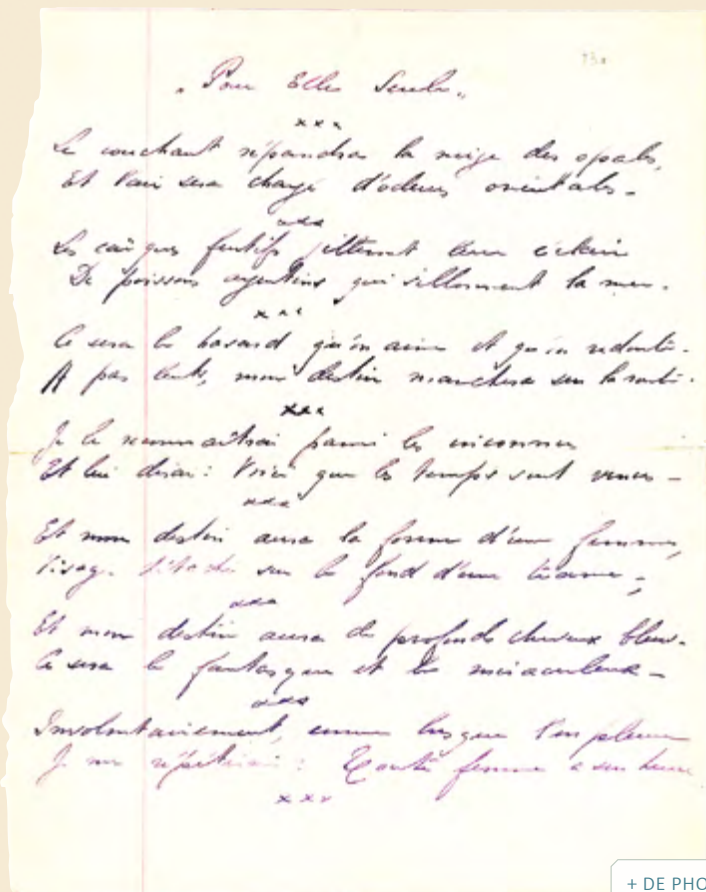 „ Pour Elle Seule „
13
x x x
Le couchant répandra la neige des opales,
Et l'air sera chargé d'odeurs orientales -
x x x
Les caïques furtifs jetteront leur éclair
De poissons argentins qui sillonnent la mer.
x x x
Ce sera le hasard qu'on aime et qu'on redoute.
A pas lents, mon destin marchera sur la route.
x x x
Je le reconnaîtrai parmi les inconnus
Et lui dirai : Voici que les temps sont venus -
x x x
Et mon destin aura la forme d'une femme,
Visage sur le fond d'une trame,
x x x
Et mon destin aura de profonds cheveux bleus.
Ce sera le fantasque et le miraculeux -
x x x
Involontairement, comme lorsque l'on pleure
Je me répéterai : Toute femme a son heure
x x x
+ DE PHO